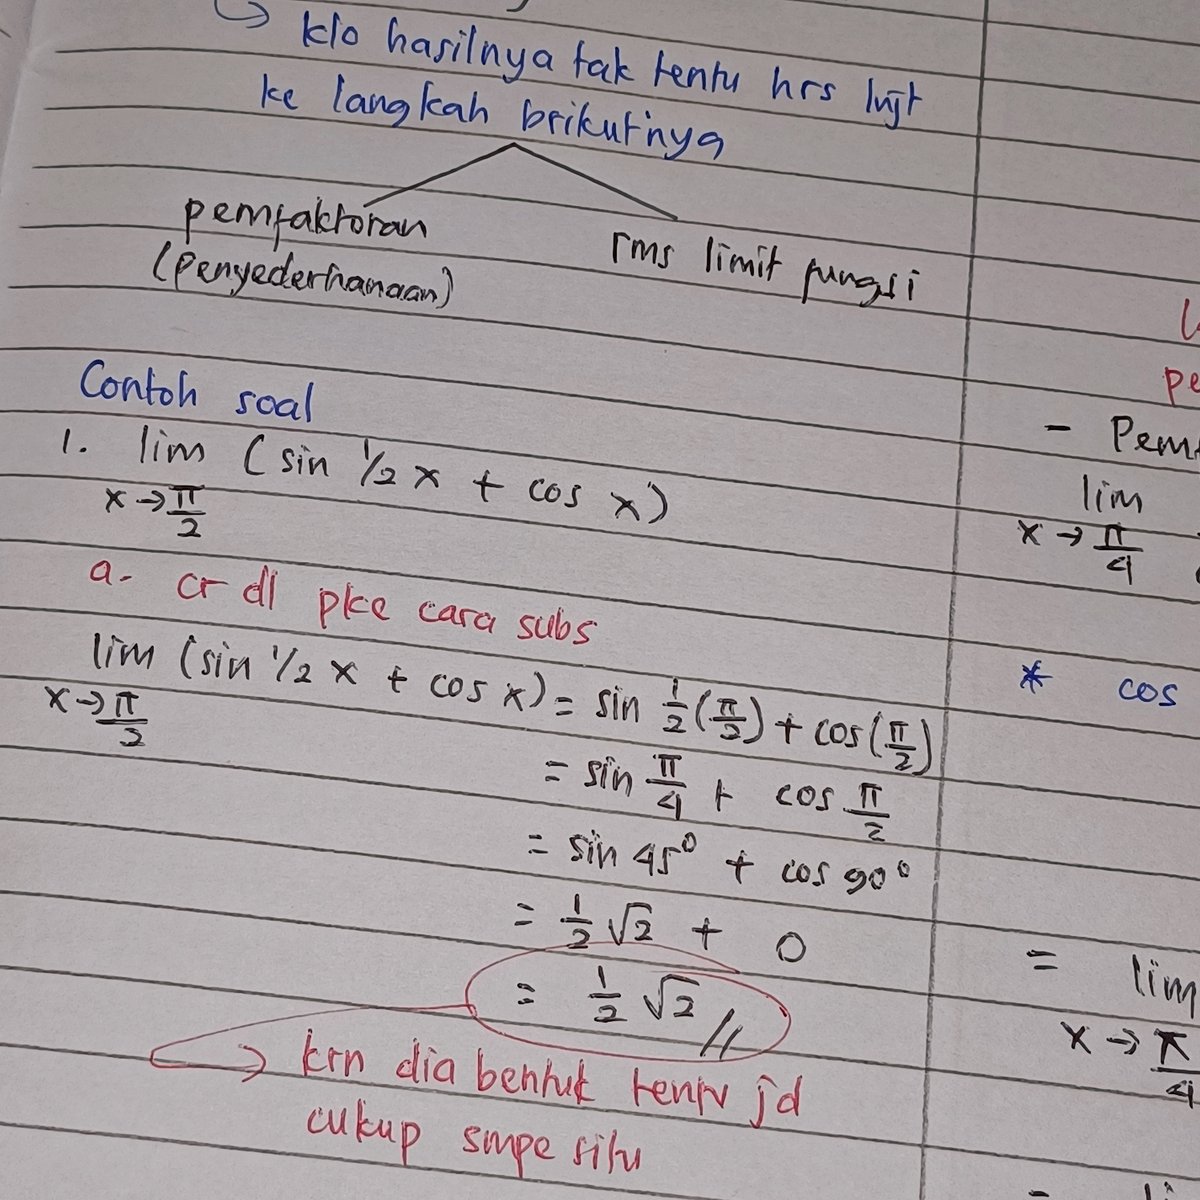 klo hasilnya tak tentu hrs lnjt
ke langkah brikut'nya
pemfaktoran
(Penyederhanaan)
rms limit fungsi
Contoh soal
1. lim (sin 1/2 x + cos x)
x → π/2
a. cr dl pke cara subs
lim (sin 1/2 x + cos x) = sin 1/2 (π/2) + cos (π/2)
x → π/2
= sin π/4 + cos π/2
= sin 45° + cos 90°
= 1/2 √2 + 0
= 1/2 √2 //
krn dia bentuk tentu jd
cukup smpe situ
pe
- Pemf
lim
x → π/4
* cos
= lim
x → π/4